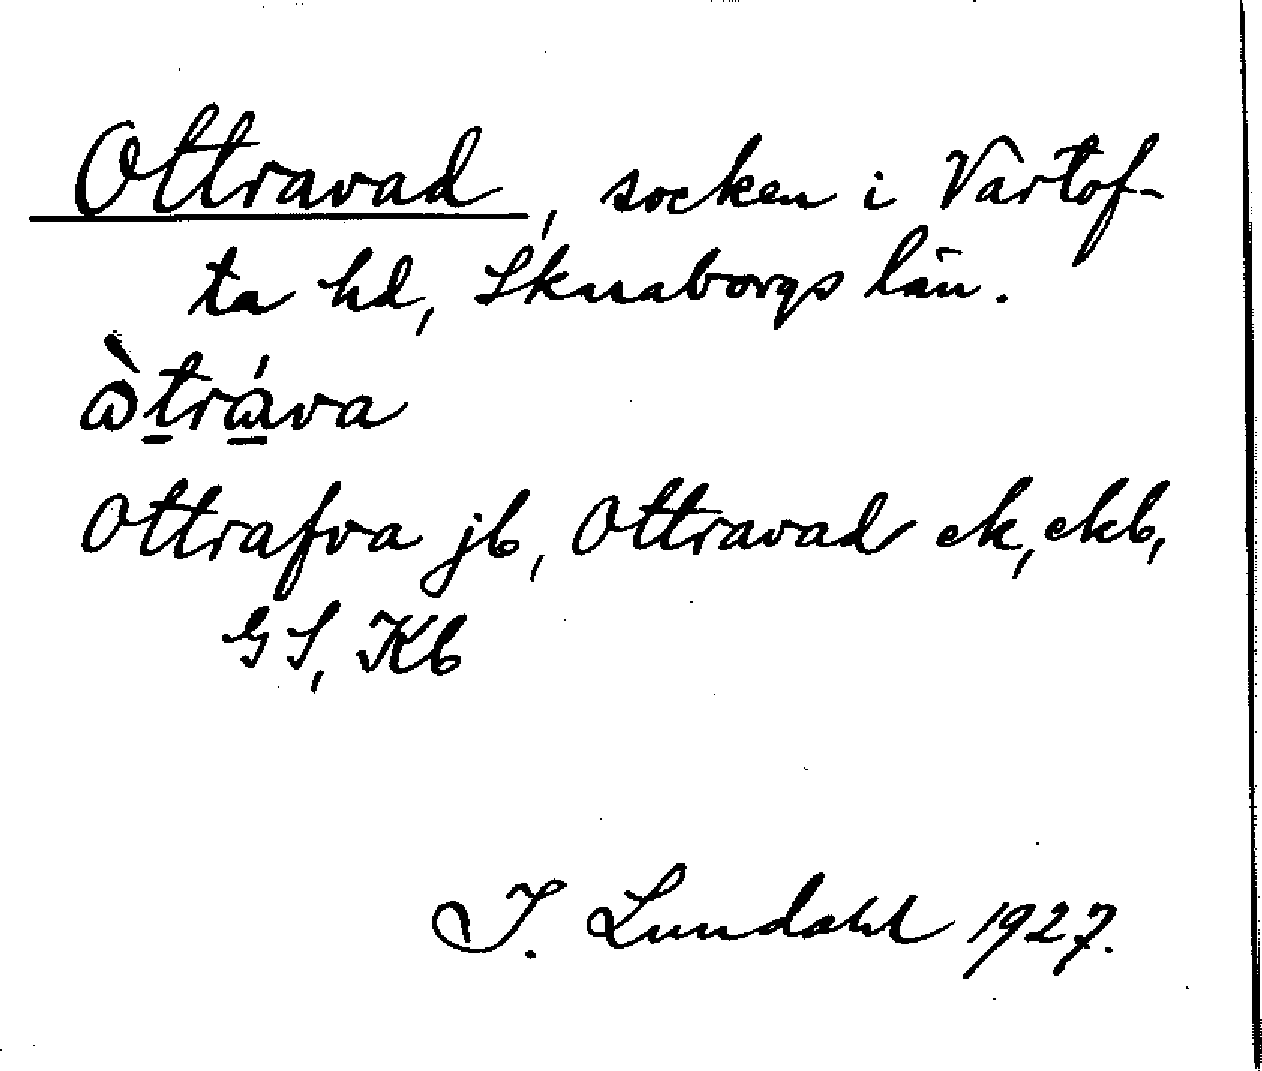 Ottravad, socken i Vartof-
ta hd, Skaraborgs län.
ɷ̀trɷ́va
Ottrafva jb, Ottravad ek, ekb,
GS, Kb
I. Lundahl 1927.